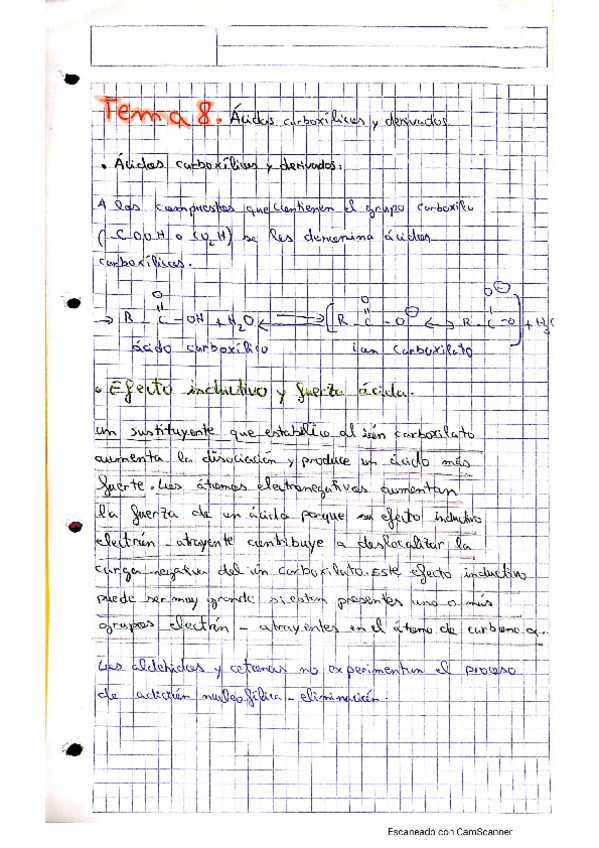 Tema 8. Ácidos carboxílicos y derivados
• Ácidos carboxílicos y derivados.
A los compuestos que contienen el grupo carboxilo
(-COOH o CO₂H) se les denomina ácidos
carboxílicos.
→ R-C(=O)-OH + H₂O ⇌ [R-C(=O)-O⊖ ↔ R-C(-O⊖)=O] + H₃O
ácido carboxílico ion carboxilato
• Efecto inductivo y fuerza ácida.
un sustituyente que estabilice al ión carboxilato
aumenta la disociación y produce un ácido más
fuerte. Los átomos electronegativos aumentan
la fuerza de un ácido porque su efecto inductivo
electrón-atrayente contribuye a deslocalizar la
carga negativa del ión carboxilato. Este efecto inductivo
puede ser muy grande si están presentes uno o más
grupos electrón-atrayentes en el átomo de carbono α.
Los aldehídos y cetonas no experimentan el proceso
de adición nucleofílica-eliminación.
Escaneado con CamScanner